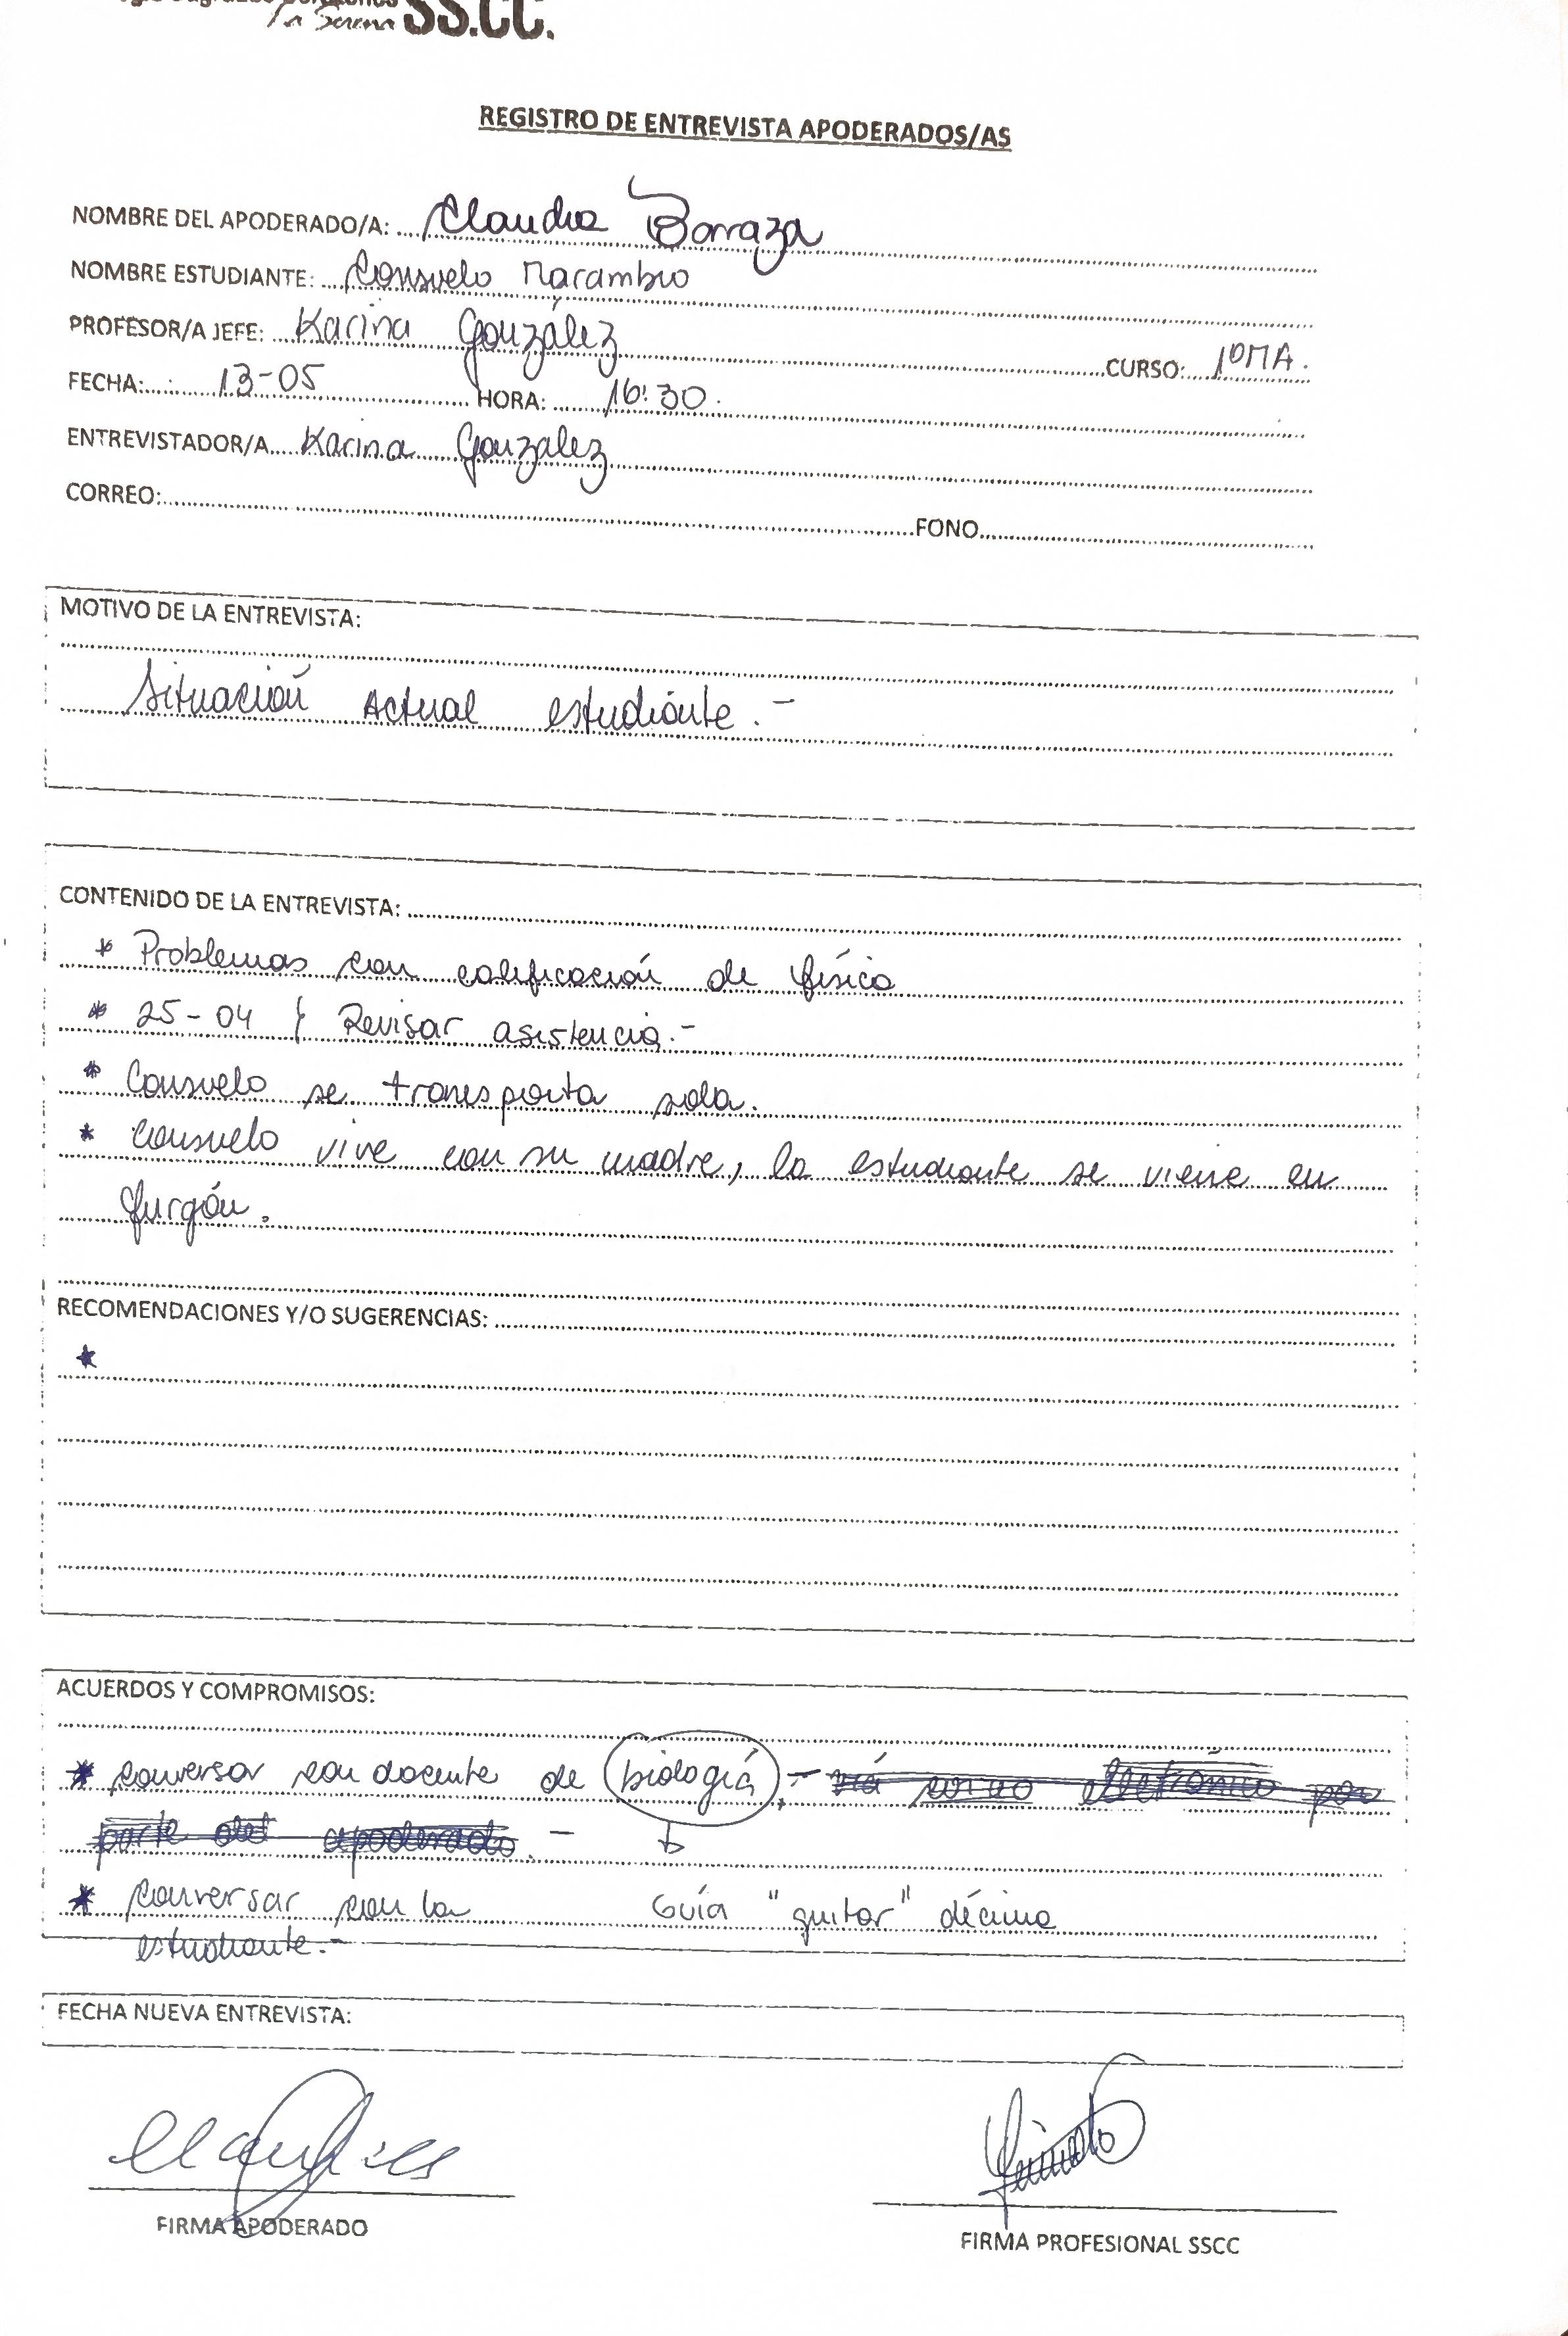 La Serena SS.CC.
REGISTRO DE ENTREVISTA APODERADOS/AS
NOMBRE DEL APODERADO/A: Claudia Barraza
NOMBRE ESTUDIANTE: Consuelo Marambio
PROFESOR/A JEFE: Karina González CURSO: 1ºMA.
FECHA: 13-05 HORA: 16:30.
ENTREVISTADOR/A Karina González
CORREO: FONO
MOTIVO DE LA ENTREVISTA:
Situación Actual estudiante.-
CONTENIDO DE LA ENTREVISTA:
* Problemas con calificación de física
* 25-04 { Revisar asistencia.-
* Consuelo se transporta sola.
* Consuelo vive con su madre, la estudiante se viene en
furgón.
RECOMENDACIONES Y/O SUGERENCIAS:
*
ACUERDOS Y COMPROMISOS:
* conversar con docente de biología.- vía correo electrónico por
parte del apoderado.-
* conversar con la Guía "quitar" décima
estudiante.-
FECHA NUEVA ENTREVISTA:
FIRMA APODERADO
FIRMA PROFESIONAL SSCC